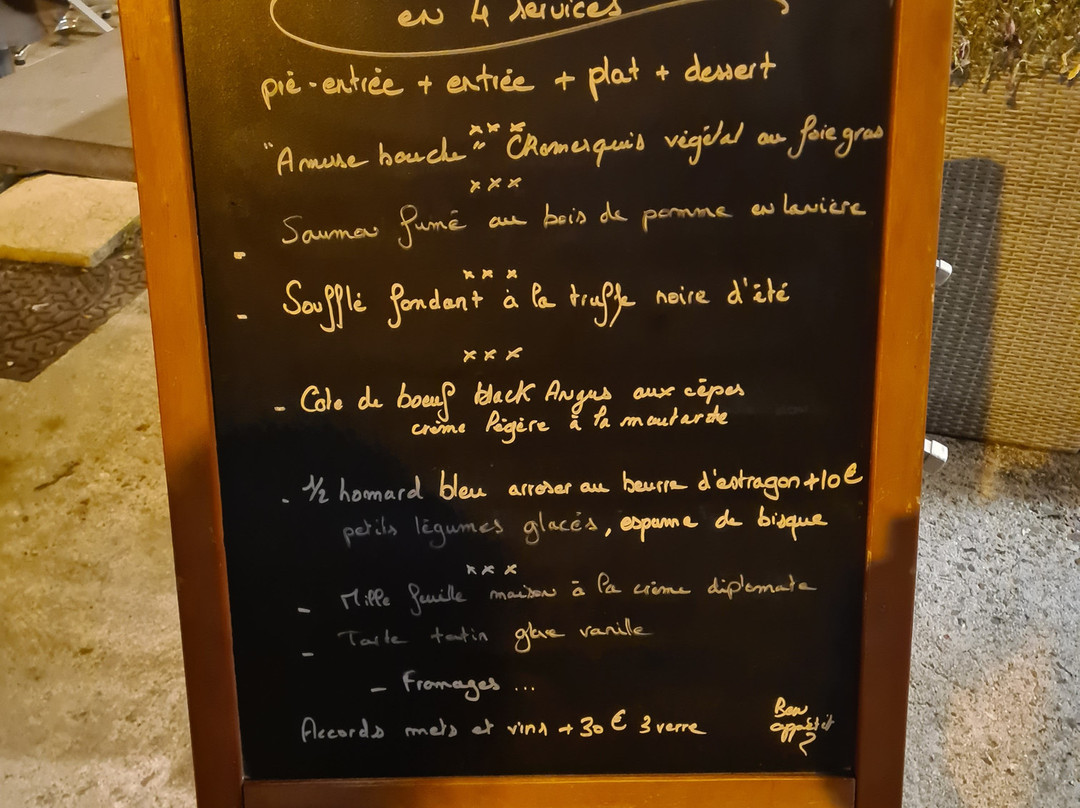 en 4 services
pré-entrée + entrée + plat + dessert
xxx
"Amuse bouche" CRomesquis végétal au foie gras
xxx
- Saumon fumé au bois de pomme en lanière
xxx
- Soufflé fondant à la truffe noire d'été
xxx
- Cote de boeuf black Angus aux cèpes
crème légère à la moutarde
- 1/2 homard bleu arroser au beurre d'estragon +10€
petits légumes glacés, espuma de bisque
xxx
- Mille feuille maison à la crème diplomate
- Tarte tatin glace vanille
- Fromages ...
Accords mets et vins + 30 € 3 verre
Bon
appétit